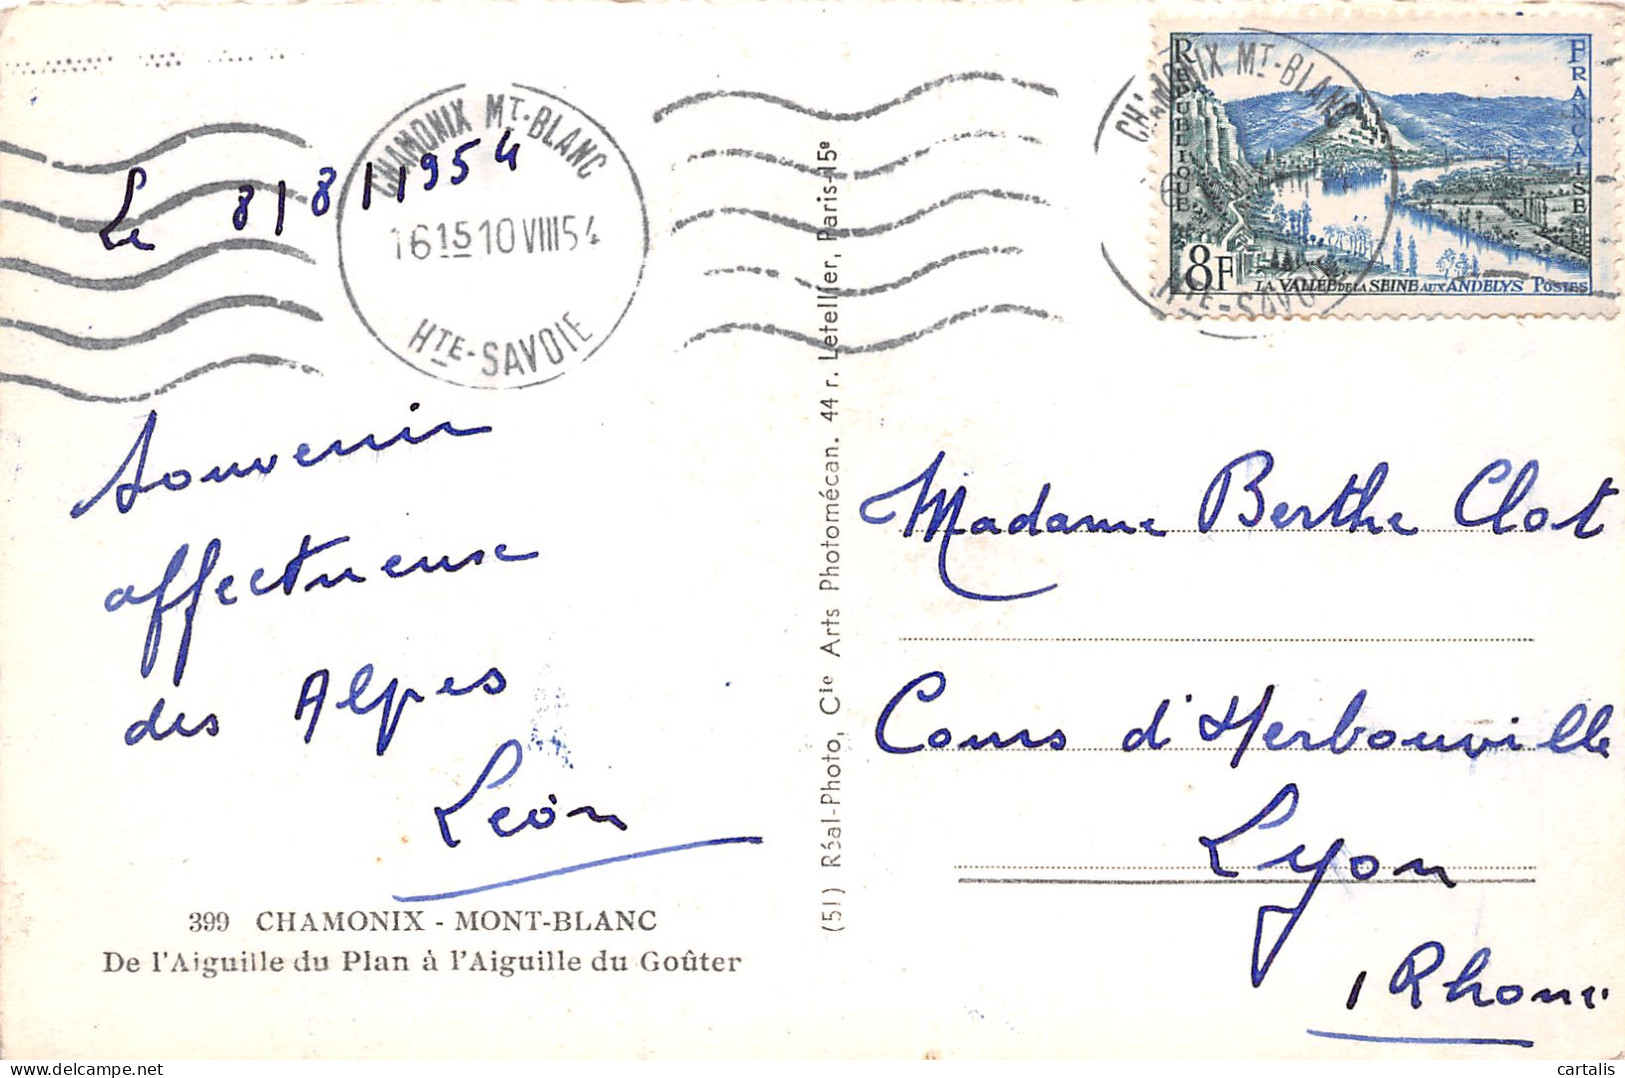 Le 8/8/1954
CHAMONIX MT-BLANC
16 15 10 VIII 54
HTE-SAVOIE
Souvenir
affectueuse
des Alpes
Léon
399 CHAMONIX - MONT-BLANC
De l'Aiguille du Plan à l'Aiguille du Goûter
(51) Réal-Photo, Cie Arts Photomécan. 44 r. Letellier, Paris-15e
CHAMONIX MT-BLANC
HTE-SAVOIE
REPUBLIQUE
FRANÇAISE
8F
LA VALLÉE DE LA SEINE AUX ANDELYS POSTES
Madame Berthe Clot
Cours d'Herbouville
Lyon
Rhone
cartalis